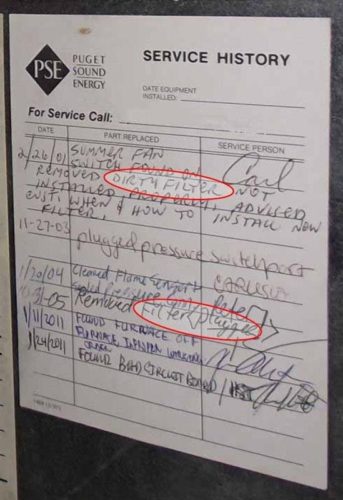 PSE
PUGET
SOUND
ENERGY
SERVICE HISTORY
DATE EQUIPMENT
INSTALLED:
For Service Call:
DATE PART REPLACED SERVICE PERSON
2/26/01 SUMMER FAN
SWITCH FOUND ON Carl
REMOVED DIRTY FILTER NOT
INSTALLED PROPERLY, ADVISED
CUST. WHEN & HOW TO INSTALL NEW
FILTER,
11-27-03 plugged pressure switch port
1/20/04 Cleaned Flame Sensor
Pressure Peter
-05 Removed Filter, plugged
1/11/2011 FOUND FURNACE OFF
FURNACE WORKING
1/24/2011 FOUND BAD CIRCUIT BOARD